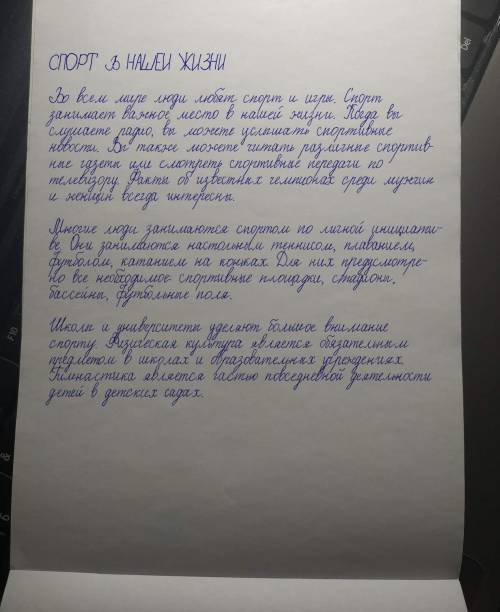 СПОРТ В НАШЕЙ ЖИЗНИ
Во всем мире люди любят спорт и игры. Спорт
занимает важное место в нашей жизни. Когда вы
слушаете радио, вы можете услышать спортивные
новости. Вы также можете читать различные спортив-
ные газеты или смотреть спортивные передачи по
телевизору. Факты об известных чемпионах среди мужчин
и женщин всегда интересны.
Многие люди занимаются спортом по личной инициати-
ве. Они занимаются настольным теннисом, плаванием,
футболом, катанием на коньках. Для них предусмотре-
но все необходимое- спортивные площадки, стадионы,
бассейны, футбольные поля.
Школы и университеты уделяют большое внимание
спорту. Физическая культура является обязательным
предметом в школах и образовательных учреждениях.
Гимнастика является частью повседневной деятельности
детей в детских садах.
Del
F10